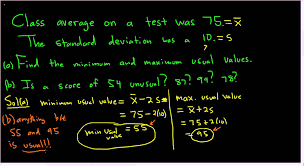 Class average on a test was 75. = x̄
The standard deviation was a 10. = s
?
(a) Find the minimum and maximum usual values.
(b) Is a score of 54 unusual? 87? 99? 78?
Sol(a) minimum usual value = x̄ - 2s
= 75 - 2(10)
min usual value = 55
max. usual value
= x̄ + 2s
= 75 + 2(10)
= 95
(b) anything btw
55 and 95
is usual!!